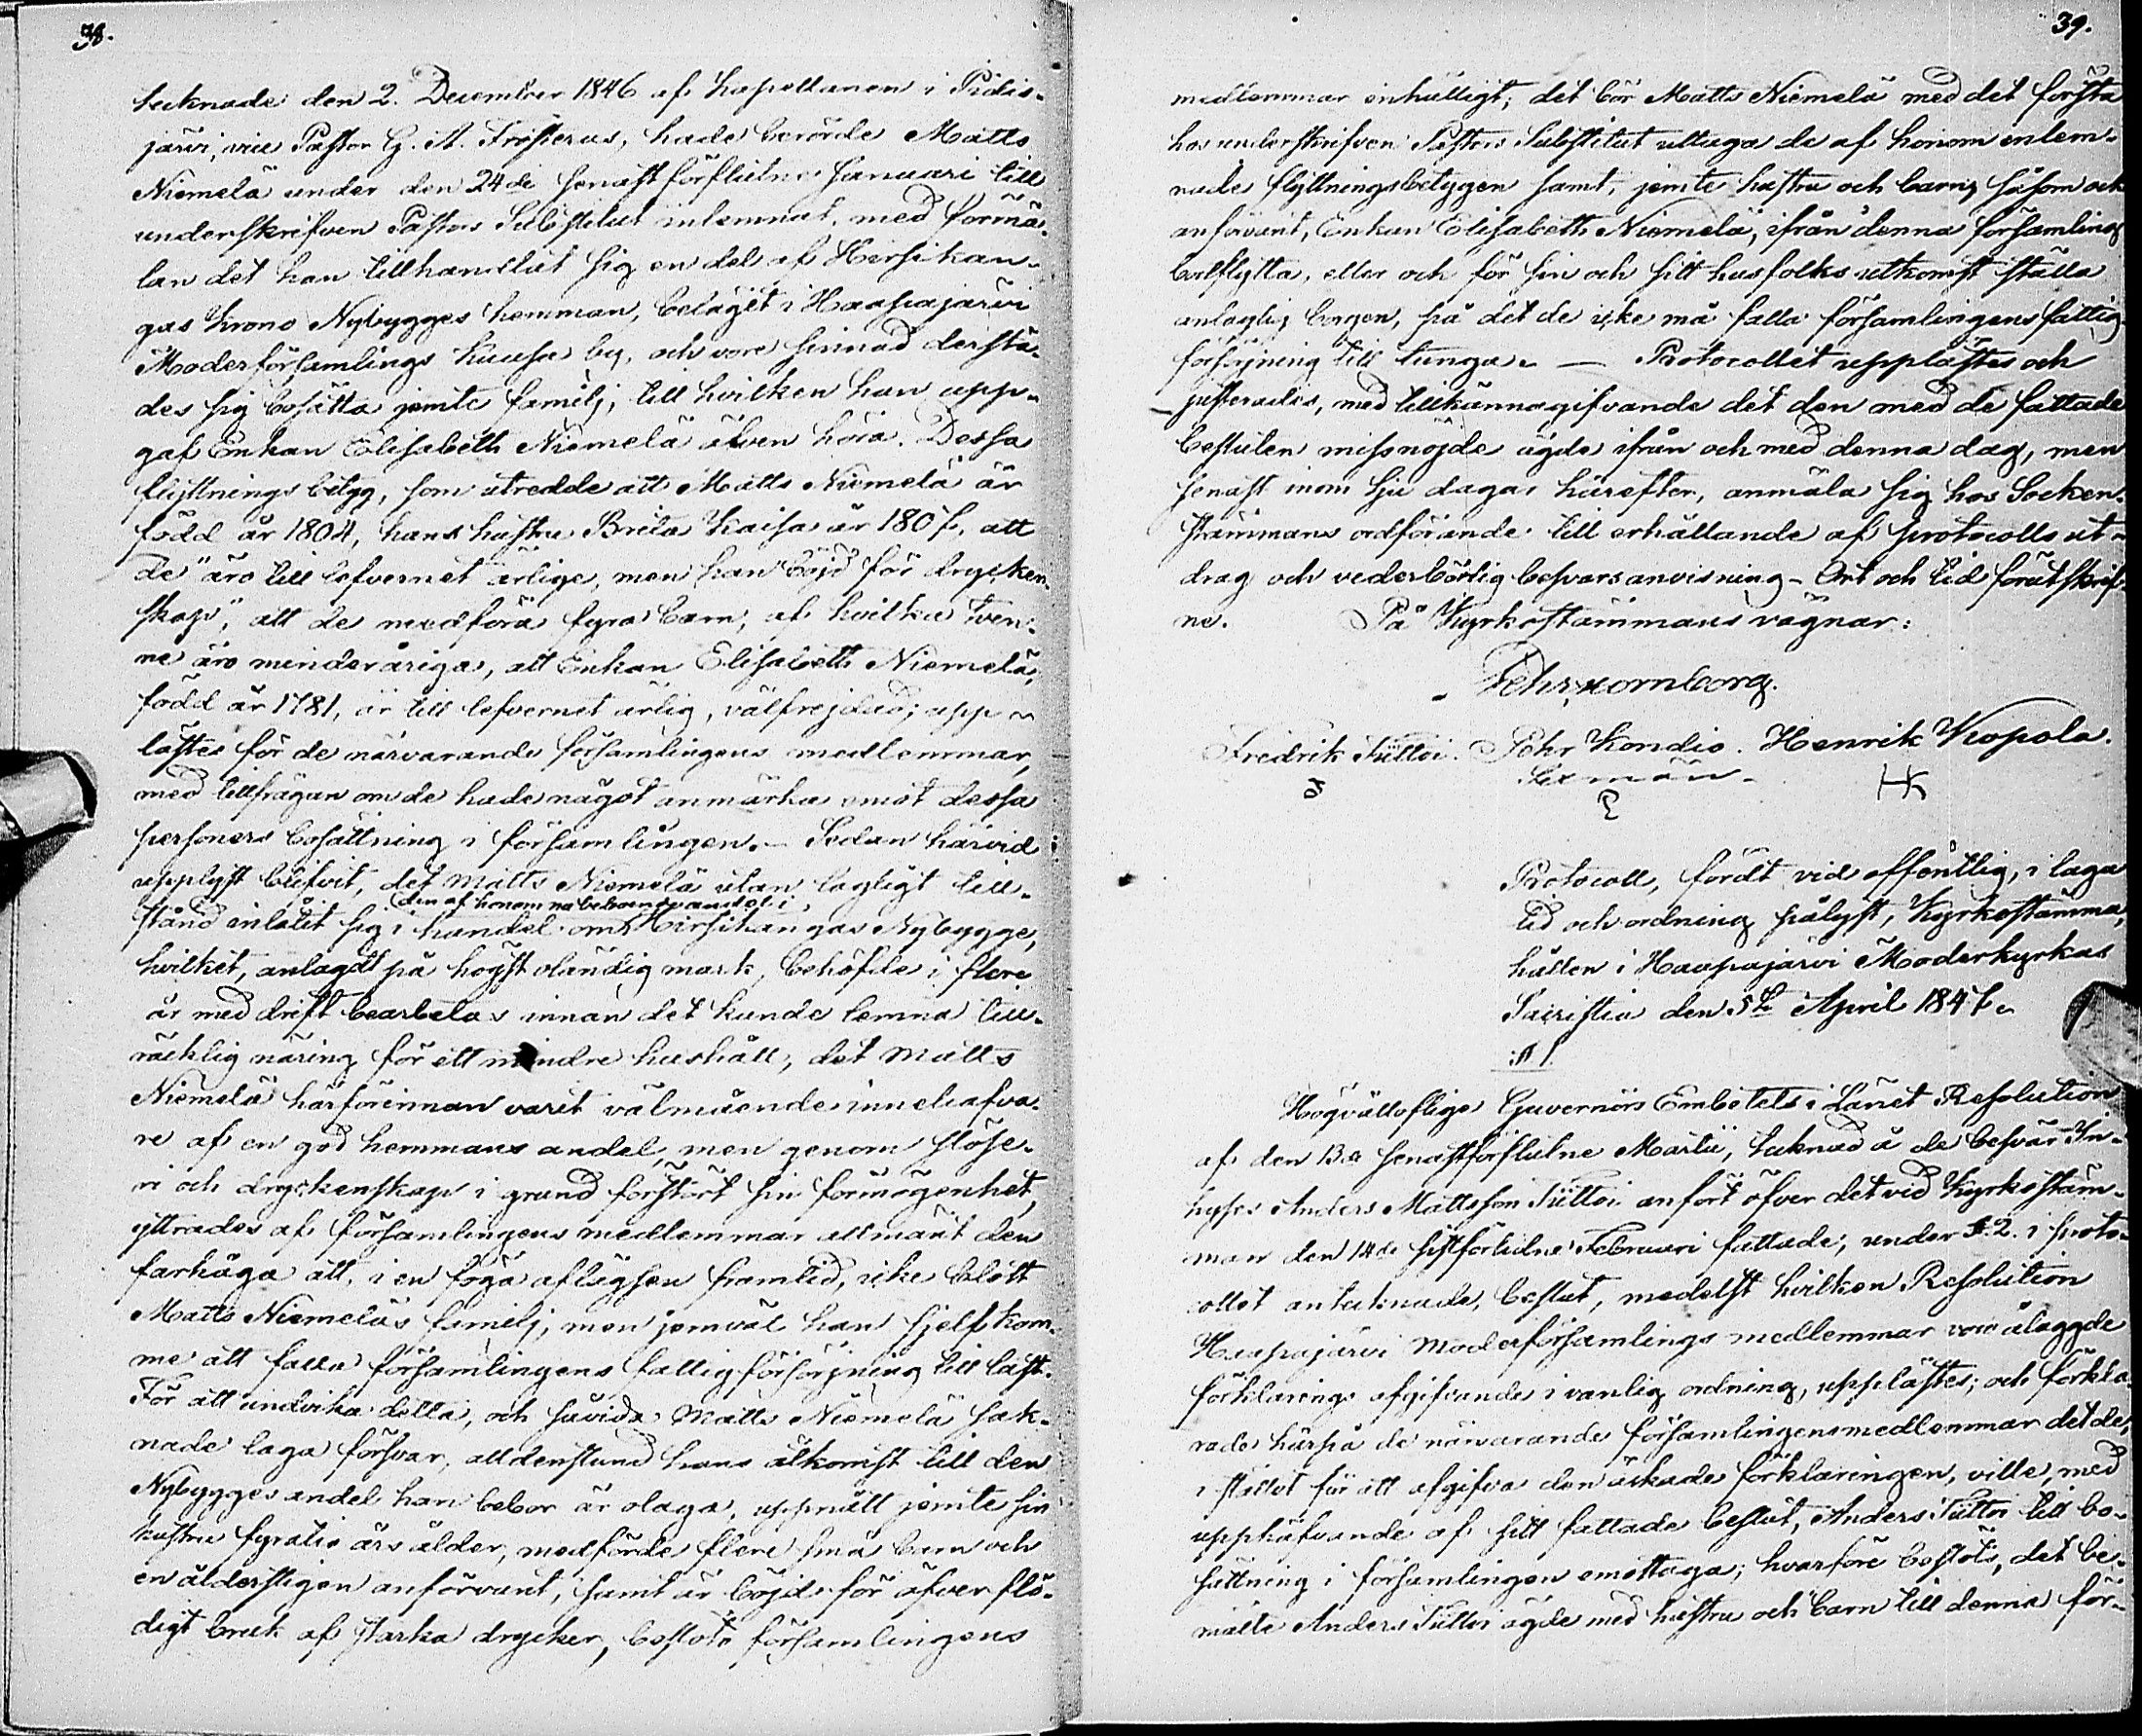 38.
tecknade den 2. December 1846 af Kapellanen i Pidis-
järvi, vice Pastor G. A. Frosterus, hade berörde Matts
Niemelä under den 24de senast förflutne Januari till
underskrifven Pastors Substitut inlemnat, med förmä-
lan det han tillhandlat sig en del af Hirsikan-
gas Krono Nybygges hemman, beläget i Haapajärvi
Moderförsamlings Kuusa by, och vore sinnad derstä-
des sig bosätta jemte familj, till hvilken han upp-
gaf Enkan Elisabeth Niemelä äfven höra. Dessa
flyttnings betyg, som utredde att Matts Niemelä är
född år 1804, hans hustru Brita Kaisa år 1807, att
de "äro till lefvernet ärlige, men han böjd för drycken-
skap", att de medföra fyra barn, af hvilka tven-
ne äro minderåriga, att Enkan Elisabeth Niemelä,
född år 1781, är till lefvernet ärlig, välfrejdad; upp-
lästes för de närvarande församlingens medlemmar,
med tillfrågan om de hade något anmärka emot dessa
personers bosättning i församlingen. – Sedan härvid
upplyst blifvit, det Matts Niemelä utan lagligt till-
den af honom nu beboende andel i
stånd inlåtit sig i handel om Hirsikangas Nybygge,
hvilket, anlagdt på högst oländig mark, behöfde i flere
år med drift bearbetas innan det kunde lemna till-
räcklig näring för ett mindre hushåll; det Matts
Niemelä härförinnan varit välmående innehafva-
re af en god hemmans andel, men genom slöse-
ri och dryckenskap i grund förstört sin förmögenhet,
yttrades af församlingens medlemmar allmänt den
farhåga att, i en föga aflägsen framtid, icke blott
Matts Niemeläs familj, men jemväl han sjelf kom-
me att falla församlingens fattigförsörjning till last.
För att undvika detta, och såvida Matts Niemelä sak-
nade laga försvar, alldenstund hans åtkomst till den
Nybygges andel han bebor är olaga, uppnått jemte sin
hustru fyratio års ålder, medförde flere små barn och
en ålderstigen anförvant, samt är böjd för öfverflö-
digt bruk af starka drycker, beslöts församlingens
39.
medlemmar enhälligt, det bör Matts Niemelä med det första
hos underskrifven Pastors Substitut uttaga de af honom inlem-
nade flyttningsbetygen samt, jemte hustru och barn, såsom och
anförvant, Enkan Elisabeth Niemelä, ifrån denna församling
bortflytta, eller och för sin och sitt husfolks utkomst ställa
antaglig borgen, på det de icke må falla församlingens fattig-
försörjning till tunga. – Protocollet upplästes och
justerades, med tillkännagifvande det den med de fattade
besluten missnöjde ägde ifrån och med denna dag, men
senast inom sju dagar härefter, anmäla sig hos Socken-
stämmans ordförande till erhållande af protocolls ut-
drag och vederbörlig besvärsanvisning – Ort och tid förutskrif-
ne. På Kyrkostämmans vägnar:
Pehr Kornborg.
Fredrik Tuttoi. Pehr Kondio. Henrik Kopola.
Sexmän.
Protocoll, fördt vid offentlig, i laga
tid och ordning pålyst, Kyrkostämma,
hållen i Haapajärvi Moderkyrkas
Sacristia den 5te April 1847.
§ 1.
Högvällofliga Guvernörs Embetets i Länet Resolution
af den 13de senastförflutne Martii, tecknad å de besvär In-
hyses Anders Mattsson Tuttoi anfört öfver det vid Kyrkostäm-
man den 14de sistförledne Februari fattade, under § 2. i proto-
collet antecknade, beslut, medelst hvilken Resolution
Haapajärvi Moderförsamlings medlemmar vore ålaggde
förklarings afgifvande i vanlig ordning, upplästes; och förkla-
rade härpå de närvarande församlingensmedlemmar det de,
i stället för att afgifva den äskade förklaringen, ville, med
upphäfvande af sitt fattade beslut, Anders Tuttoi till bo-
sättning i församlingen emottaga; hvarföre beslöts, det be-
mälte Anders Tuttoi ägde med hustru och barn till denna för-